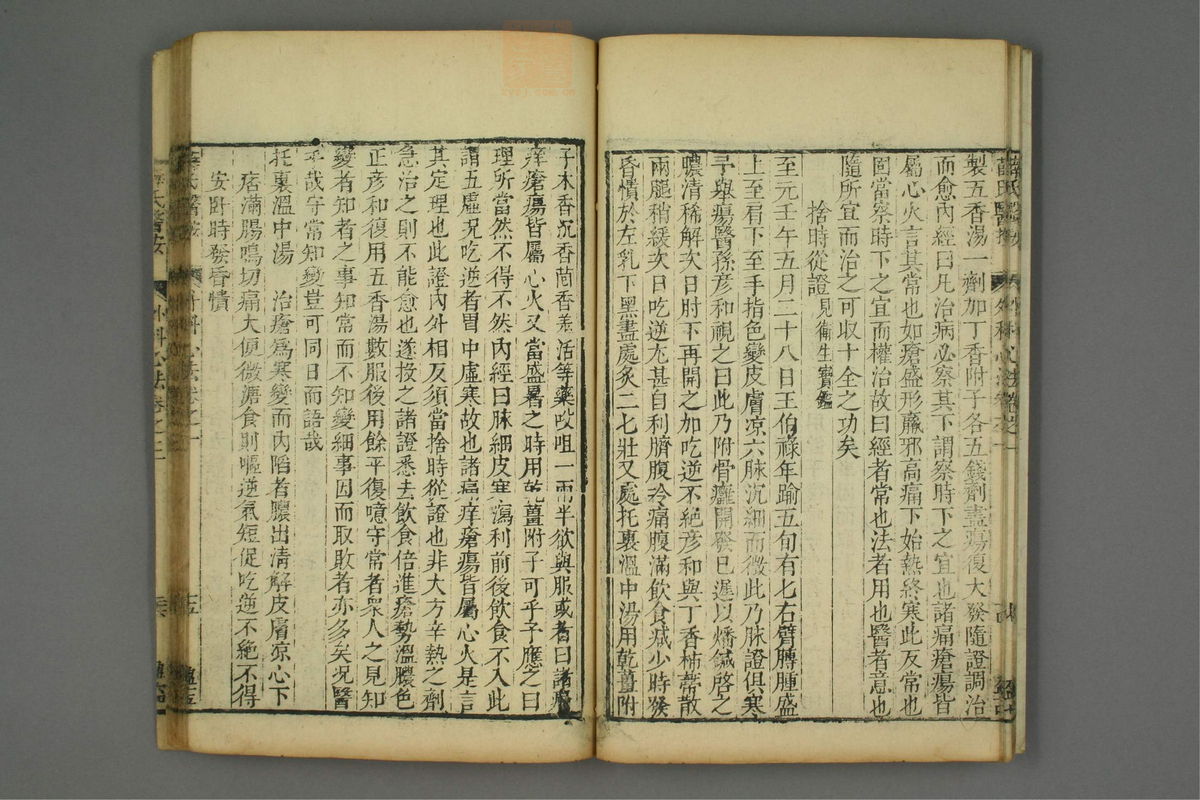 製五香湯一劑加丁香附子各五錢劑盡瘍復大發隨證調治
而愈內經曰凡治病必察其下謂察時下之宜也諸痛瘡瘍皆
屬心火言其常也如瘡盛形羸邪高痛下始熱終寒此反常也
固當察時下之宜而權治故曰經者常也法者用也醫者意也
隨所宜而治之可收十全之功矣
捨時從證見衛生寶鑑
至元壬午五月二十八日王伯祿年踰五旬有七右臂膊腫盛
上至肩下至手指色變皮膚凉六脉沉細而微此乃脉證俱寒
予舉瘍醫孫彦和視之曰此乃附骨癰開發已遲以燔鍼啓之
膿清稀解次日肘下再開之加吃逆不絕彦和與丁香柿蔕散
兩服稍緩次日吃逆尤甚自利臍腹冷痛腹滿飲食減少時發
昏憒於左乳下黑盡處灸二七壯又處托裏溫中湯用乾薑附
子木香沉香茴香羗活等藥㕮咀一兩半欲與服或者曰諸痛
痒瘡瘍皆屬心火又當盛暑之時用乾薑附子可乎予應之曰
理所當然不得不然內經曰脉細皮寒瀉利前後飲食不入此
謂五虛况吃逆者胃中虛寒故也諸痛痒瘡瘍皆屬心火是言
其定理也此證內外相反須當捨時從證也非大方辛熱之劑
急治之則不能愈也遂投之諸證悉去飲食倍進瘡勢溫膿色
正彦和復用五香湯數服後用餘平復噫守常者衆人之見知
變者知者之事知常而不知變細事因而取敗者亦多矣况醫
乎哉守常知變豈可同日而語哉
托裏溫中湯 治瘡爲寒變而內陷者膿出清解皮膚凉心下
痞滿腸鳴切痛大便微溏食則嘔逆氣短促吃逆不絕不得
安卧時發昏憒
薛氏醫按 外科心法卷之二